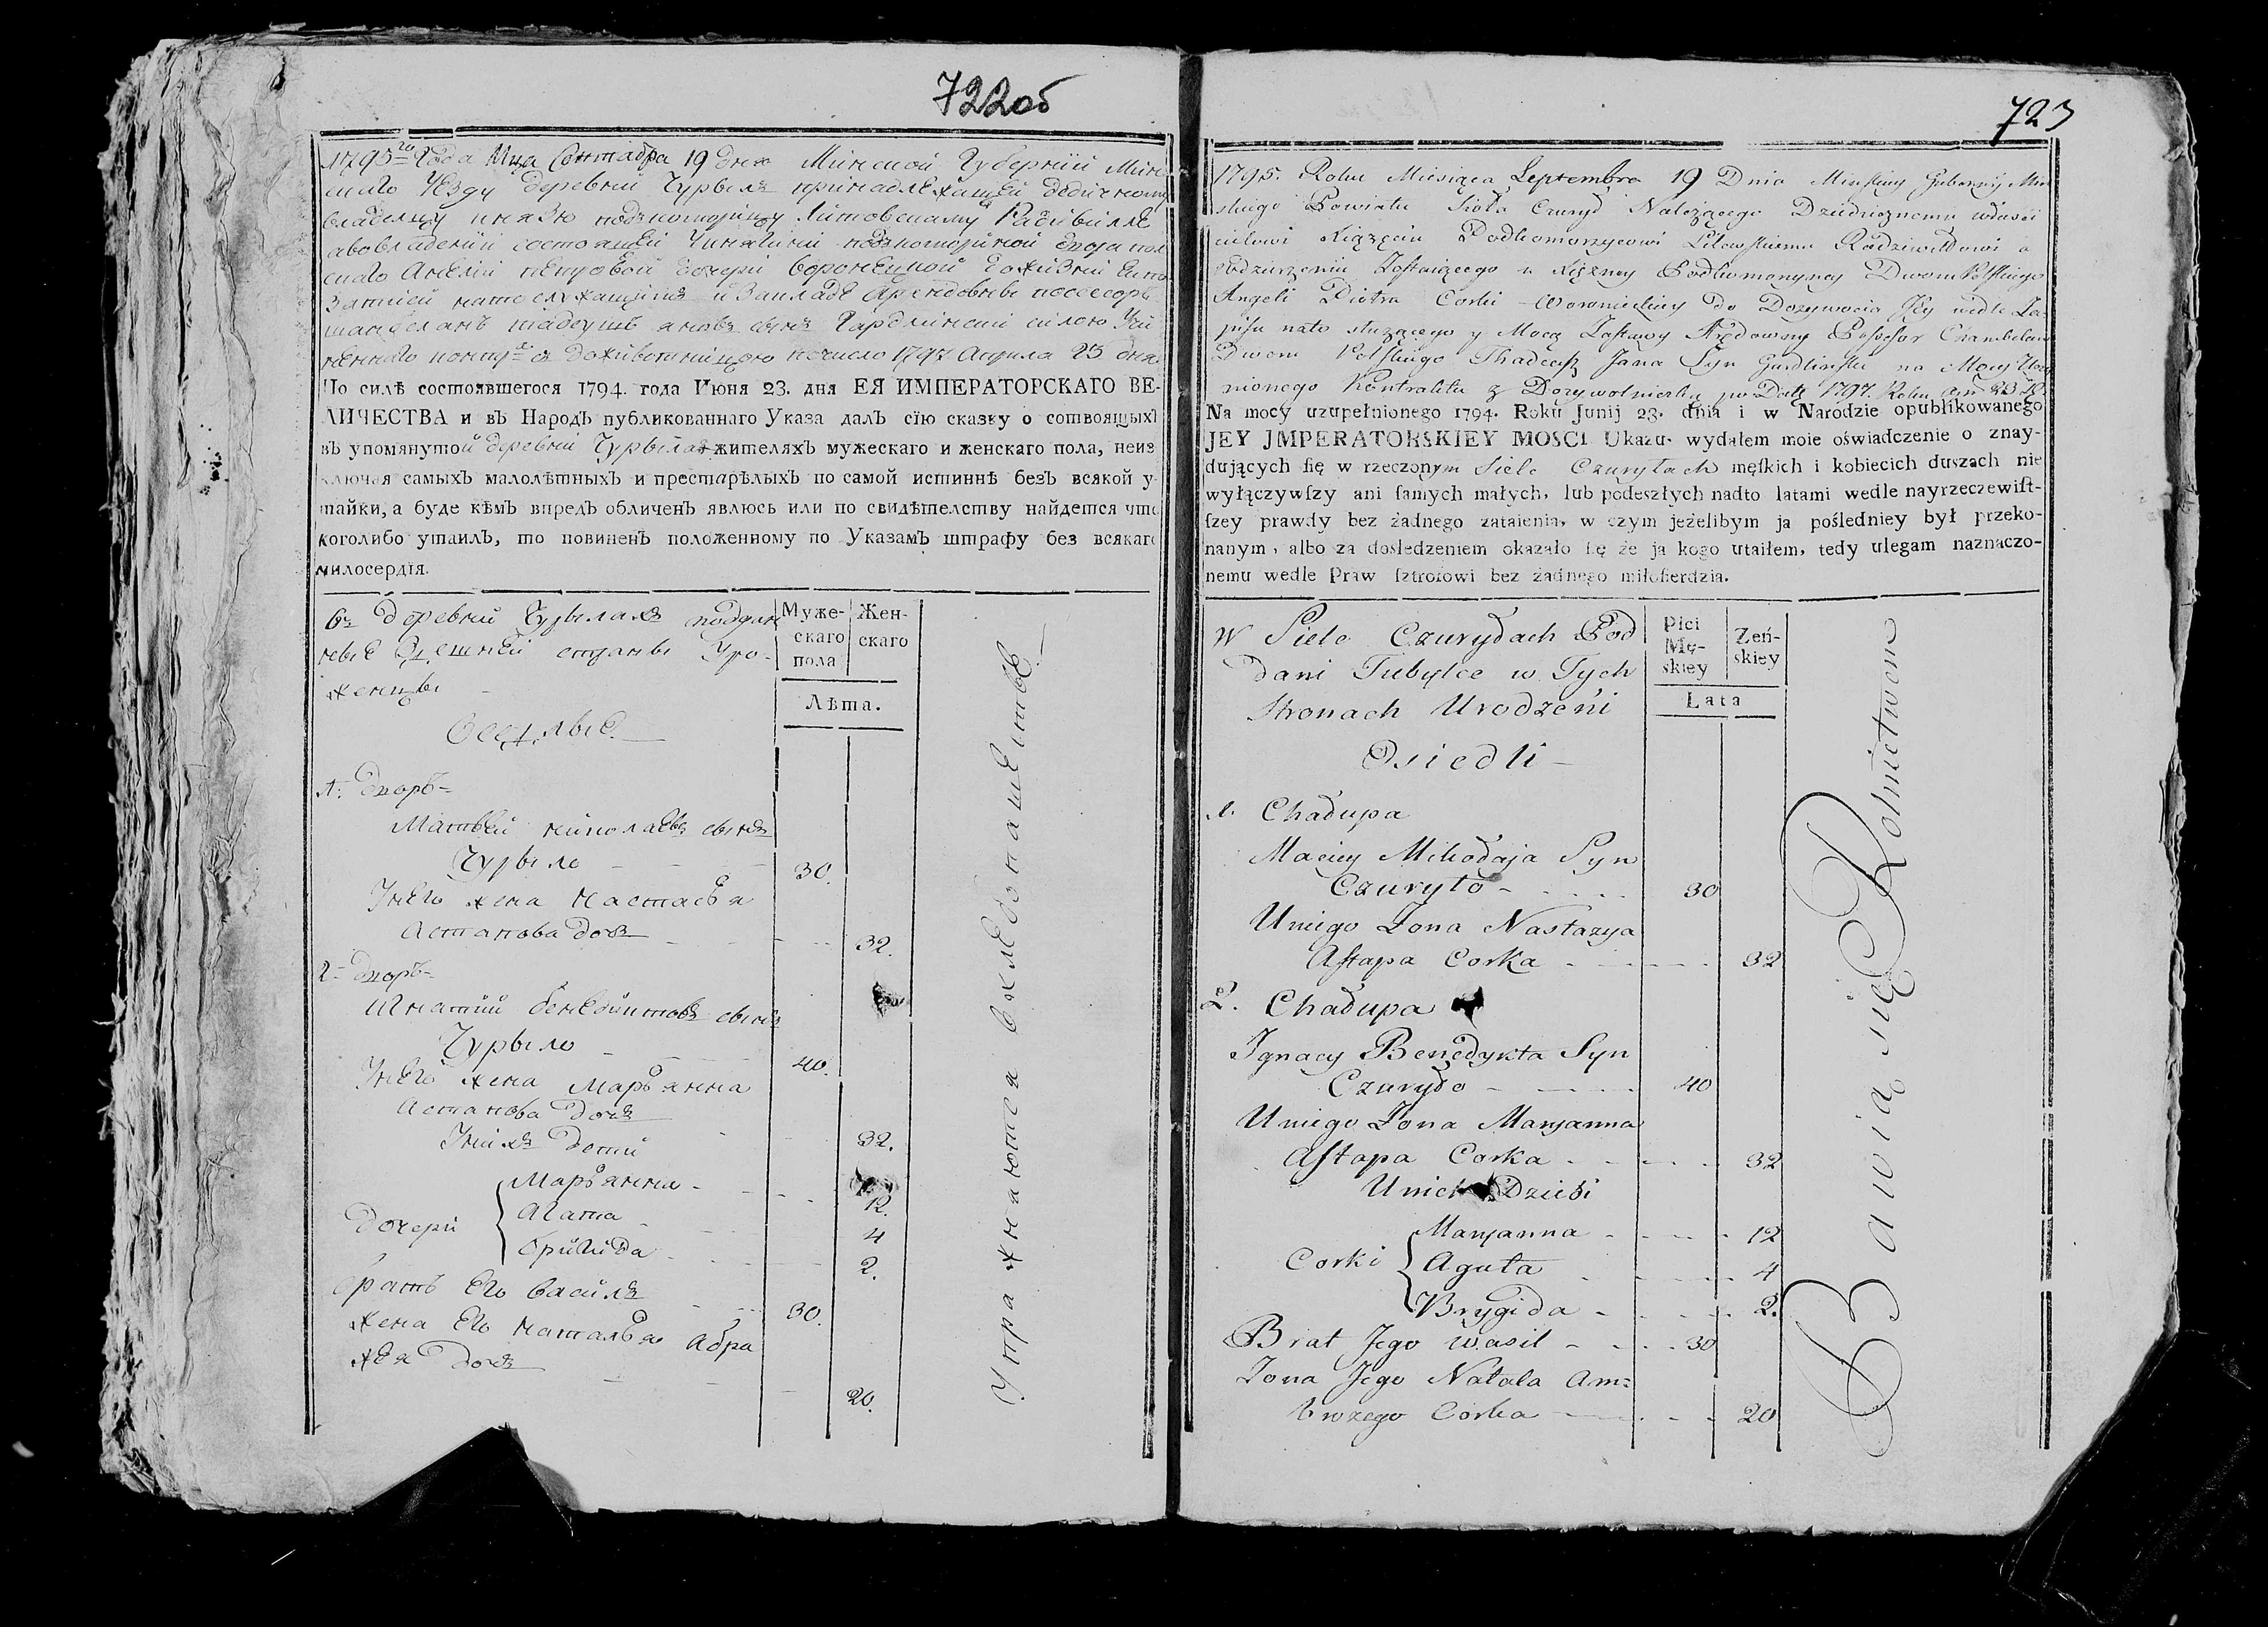 722об
1795го Года Мца Сентабра 19 дня Минской Губернии Мин
скаго Уезду деревни Чурылъ принадлежащей дедичному
владелцу князю подкоморицу Литовскому Радивилле
скаго Анелии петровой дочери воронецкой
шанбелянъ тадеушъ яновъ сынъ Гардлинский силою
1797 Априла 25 дня
По силѣ состоявшегося 1794. года Июня 23. дня ЕЯ ИМПЕРАТОРСКАГО ВЕ-
ЛИЧЕСТВА и въ Народъ публикованнаго Указа далъ сїю сказку о сотвоящыхъ
въ упомянутой деревни Чурылахъ жителяхъ мужескаго и женскаго пола, неиз
ключая самыхъ малолѣтныхъ и престарѣлыхъ по самой истиннѣ безъ всякой у-
тайки, а буде кѣмъ впредъ обличенъ явлюсь или по свидѣтелству найдется что
коголибо утаилъ, то повиненъ положенному по Указамъ штрафу без всякаго
милосердїя.
въ деревни Чурылахъ поддан
ные здешней страны Уро-
женцы
Оселые
Муже-
скаго
пола
Жен-
скаго
Лѣта.
1. дворъ
Матвей николаевъ сынъ
Чурыло 30.
Унего жена настасья
Астапова дочъ 32.
2. дворъ
Игнатий бенедиктовъ сынъ
Чурыло 40.
Унего жена марьянна
Астапова дочъ 32.
Унихъ дети
дочери
Марьянна 12.
Агата 4
бригида 2.
братъ Его василъ 30.
жена Его наталья Абра
жея дочъ 20.
Упражняются въ хлебопашестве
723
1795. Roku Miesiąca Septembra 19 Dnia Minskiey Gubernij Min
skiego Powiatu Sioła Czurył Należącego Dziedzicznemu właści
cielowi Xiążęciu Podkomorzycowi Litewskiemu Radziwiłłowi a
Rodzierżeniu Zostaiącego u Xiężney Podkomorzyney Dworu Polskiego
Angeli Piotra Corki Woronieckiey do Dożywocia Jey wedle Za-
pisu nato służącego y Mocą Zastawy Arędowny Possesor Chambelan
Dworu Polskiego Thadeusz Jana Syn Gardliński na Mocy Uczy
nionego Kontraktu z Dożywotniczką pod Datą 1797. Roku Apr: 25 D.
Na mocy uzupełnionego 1794. Roku Junij 23. dnia i w Narodzie opublikowanego
JEY JMPERATORSKIEY MOSCI Ukazu. wydałem moie oświadczenie o znay-
dujących ſię w rzeczonym Siele Czuryłach męſkich i kobiecich duszach nie
wyłączywſzy ani ſamych małych, lub podeszłych nadto latami wedle nayrzeczewiſt-
ſzey prawdy bez żadnego zataienia, w czym jeżelibym ja pośledniey był przeko-
nanym, albo za dośledzeniem okazało ſię że ja kogo utaiłem, tedy ulegam naznaczo-
nemu wedle Praw ſztrofowi bez żadnego miłoſierdzia.
W Siele Czuryłach Pod
dani Tubylce w Tych
Stronach Urodzeni
Osiedli
Płci
Mę-
skiey
Żeń-
skiey
Lata
1. Chałupa
Maciey Mikołaja Syn
Czuryło 30
Uniego Żona Nastazya
Astapa Corka 32
2. Chałupa
Ignacy Benedykta Syn
Czuryło 40
Uniego Żona Maryanna
Astapa Corka 32
Unich Dzieci
Corki
Maryanna 12
Agata 4
Brygida 2.
Brat Jego Wasil 30
Żona Jego Natala Am=
brożego Corka 20
Bawią się Rolnictwem